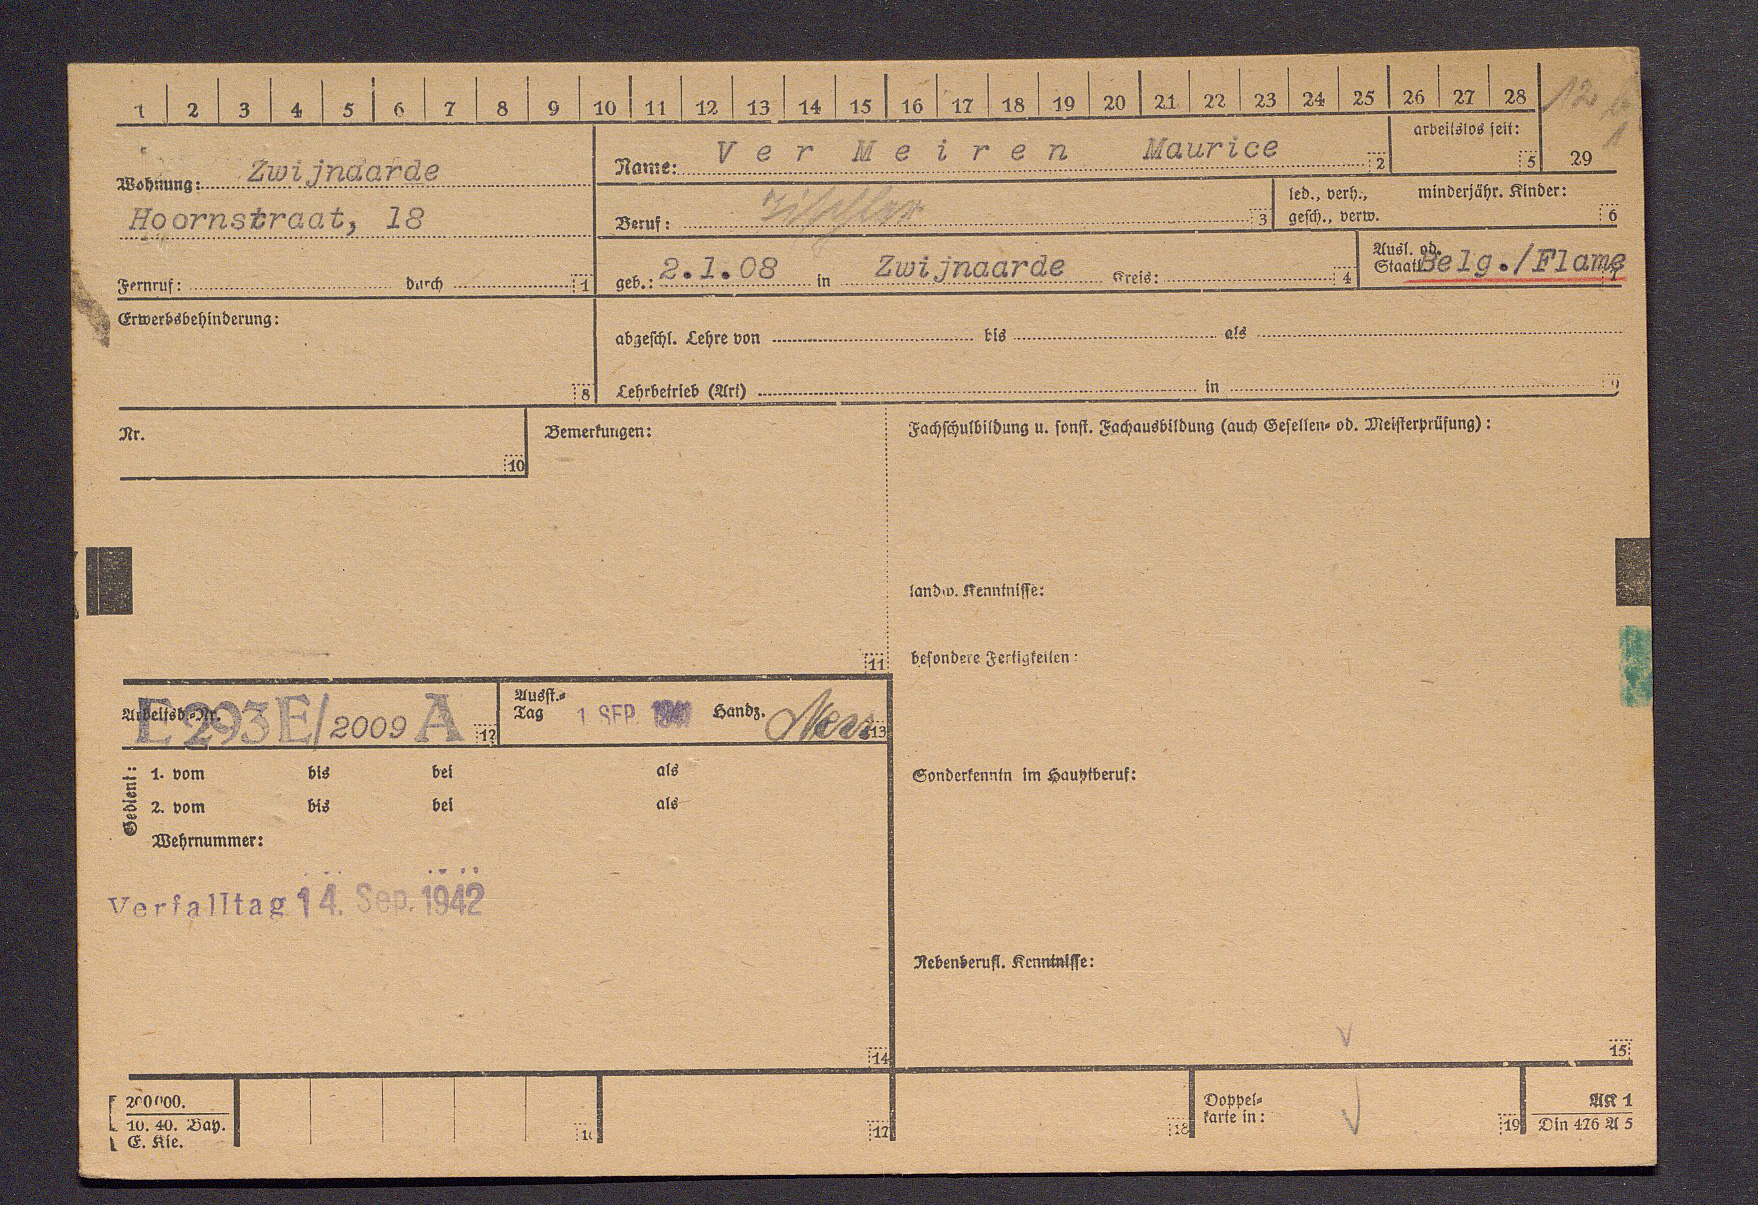 1 2 3 4 5 6 7 8 9 10 11 12 13 14 15 16 17 18 19 20 21 22 23 24 25 26 27 28
12
1
29
Wohnung: Zwijnaarde
Hoornstraat, 18
Fernruf: durch 1
Name: Ver Meiren Maurice 2
arbeitslos seit: 5
Beruf: Tischler 3
led., verh., minderjähr. Kinder:
gesch., verw. 6
geb.: 2.1.08 in Zwijnaarde Kreis: 4
Ausl. od.
Staatl. Belg./Flame 7
Erwerbsbehinderung:
8
abgeschl. Lehre von bis als
Lehrbetrieb (Art) in 9
Nr.
10
Bemerkungen:
11
Fachschulbildung u. sonst. Fachausbildung (auch Gesellen- od. Meisterprüfung):
landw. Kenntnisse:
besondere Fertigkeiten:
Sonderkenntn im Hauptberuf:
Nebenberufl. Kenntnisse:
15
Arbeitsb.-Nr. E 293E/2009 A 12
Ausst.-
Tag 1 SEP. 1941 Handz. 13
Gedient:
1. vom bis bei als
2. vom bis bei als
Wehrnummer:
Verfalltag 14. Sep. 1942
14
200000.
10. 40. Bay.
E. Kle.
16
17
18
Doppel-
karte in:
19
AK 1
Din 476 A 5